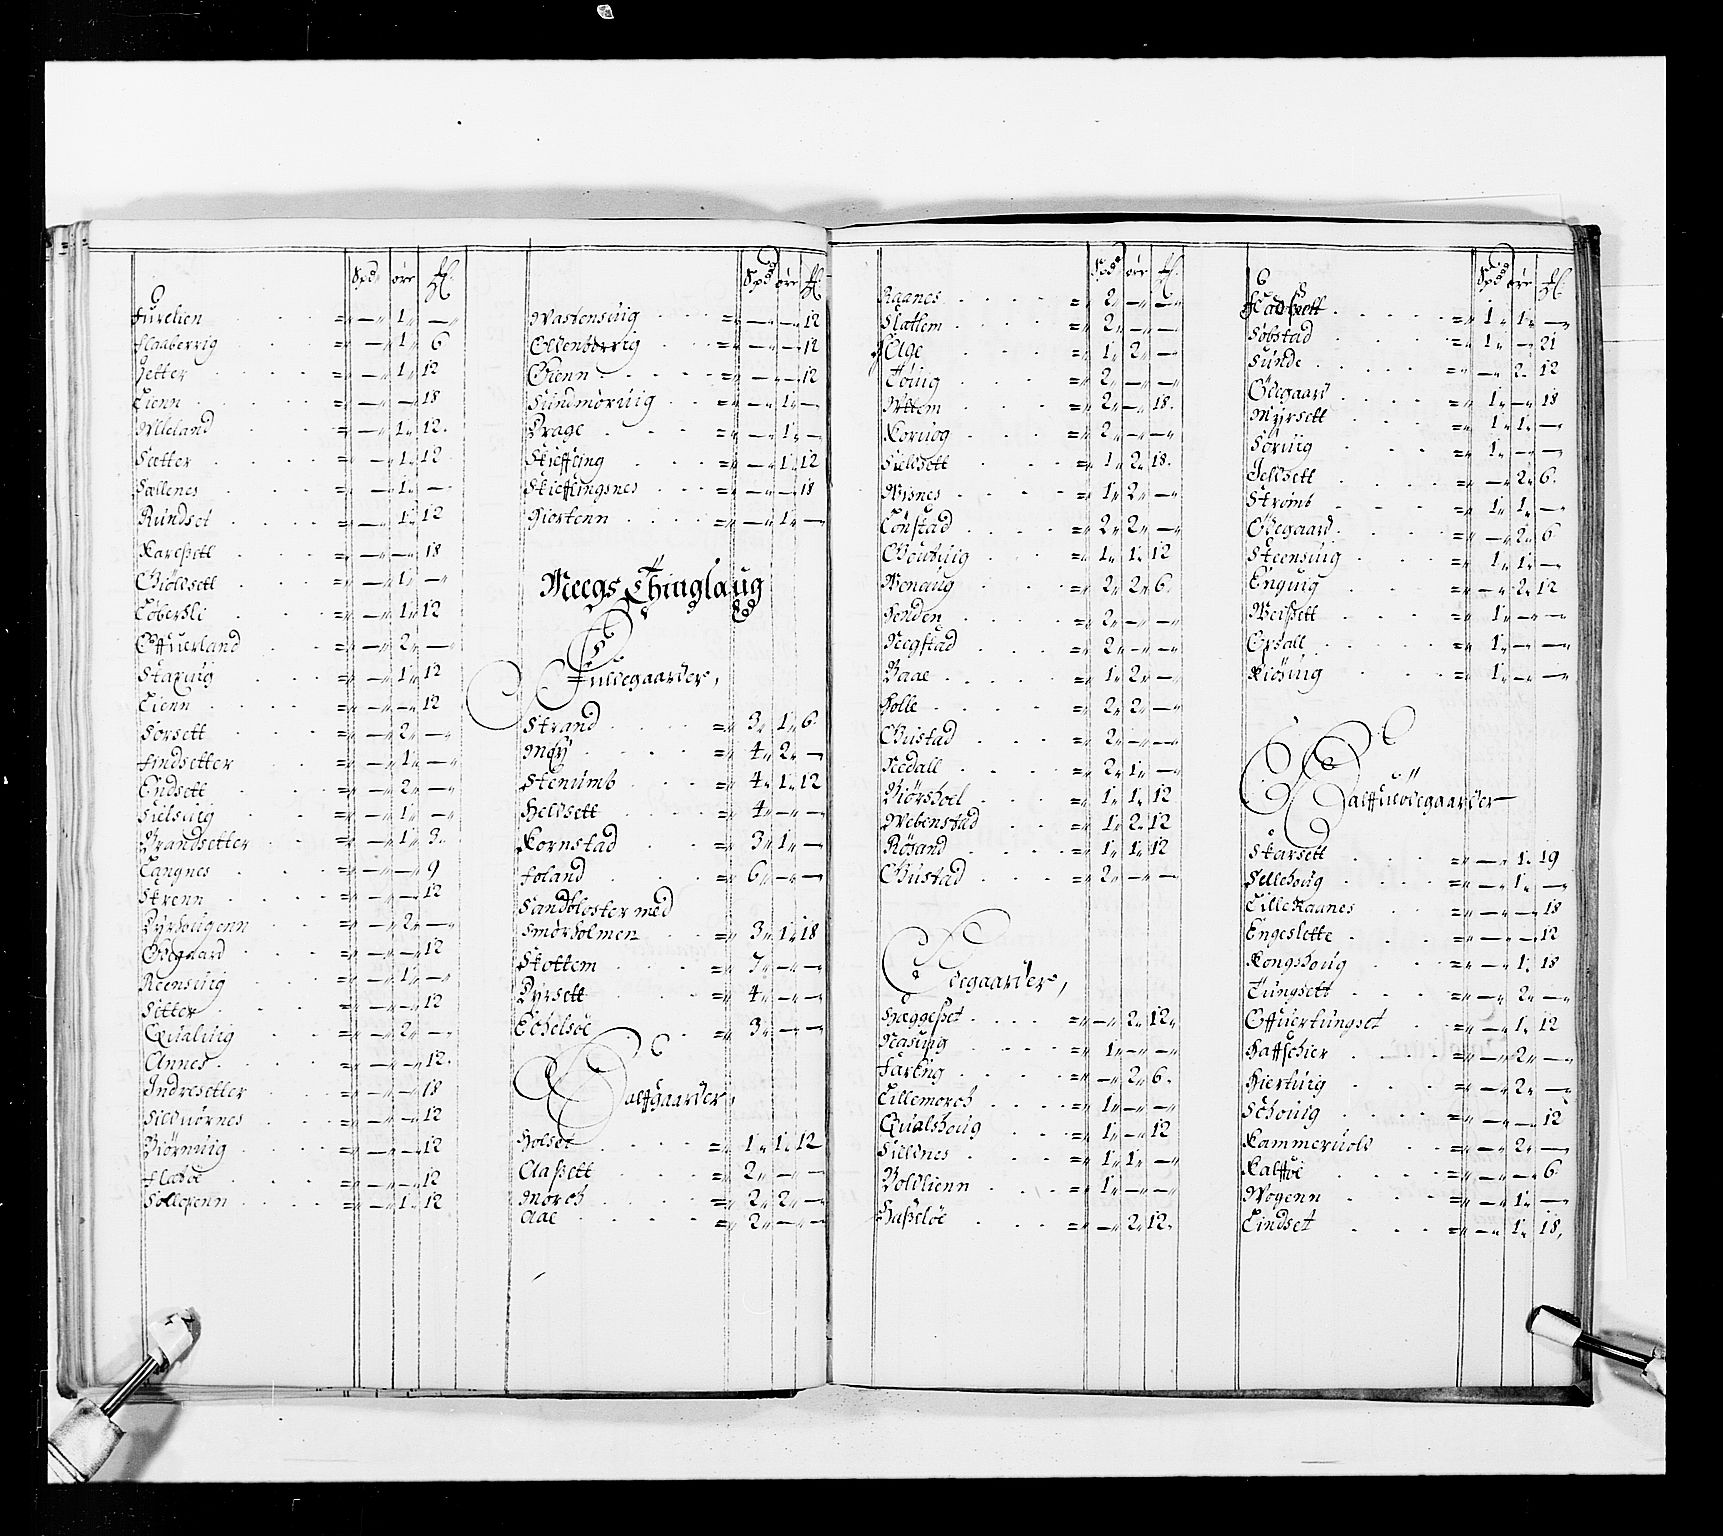 Spd. øre
Furelien = — 1 —
Flaaberrig = — 1 6
Zetter = — 1 12
Lienn = — — 18
Ulleland = — 1 12
Sætter = — 1 12
Sællenes = — 1 —
Rundset = — 1 12
Karessett = — — 18
Gieldsett = — 1 —
Lobersli = — 1 12
Offuerland = — 2 —
Staxuig = — 1 12
Lienn = — — 12
Sorsett = — 2 —
Findsetter = — 1 —
Endsett = — 2 —
Sielsuig = — 1 —
Brandsetter = — 1 3
Tangnes = — — 9
Strenn = — — 12
Dyrhougenn = — 2 —
Ødegaard = — — 12
Reensuig = — 1 —
Setter = — — 12
Qualuig = — 2 —
Annes = — — 12
Indresetter = — — 18
Sildnørnes = — — 12
Biørnuig = — — 12
Fladøe = — — 12
Sollexenn = — 1 12
Spd øre
Wastensuig = — — 12
Ellenberrig = — — 12
Øienn = — — 12
Sundmøruig = — 1 —
Drage = — 1 —
Skieffling = — 1 12
Skiefflingsnes = — — 18
Hiertenn = — 1 —
Meegs Thinglaug
Fuldegaarder,
Strand = 3 1 6
Møy = 4 2 —
Stenumb = 4 1 12
Heldsett = 4 — —
Kornstad = 3 1 —
Foland = 6 — —
Sandbloster med
Smørholmen = 3 1 18
Skottem = 7 — —
Dyrsett = 4 — —
Eckelsøe = 3 — —
Halffgaarder,
Holset = 1 1 12
Aassett = 2 — —
Morch = 2 2 —
Aae = 2 — —
Spd øre
Raanes = 2 — —
Slattem = 2 — —
Elge = 1 2 —
Tøuig = 2 — —
Uttem = 2 — 18
Koruog = 2 — —
Sieldsett = 1 2 18
Wisnes = 1 2 —
Tønstad = 2 2 —
Gudtuig = 1 1 12
Wenaug = 2 2 6
Henden = 2 — —
Neegstad = 2 — —
Baae = 1 2 —
Holle = 2 2 —
Gustad = 2 — —
Nedall = 2 1 —
Biørshoel = 1 1 12
Webenstad = 1 2 12
Røsand = 1 1 12
Gustad = 2 — —
Ødegaarder,
Hæggesset = — 2 12
Nasuig = 1 — —
Faring = — 2 6
Lillemorch = 1 — —
Qualshoug = 1 — 12
Sieldnes = 1 1 —
Boldlienn = 1 — —
Hasseløe = — 2 12
Spd øre
Kadsett = 1 1 —
Søbstad = 1 — 21
Sunde = — 2 12
Ødegaard = 1 — 18
Myrsett = 1 1 —
Søruig = 1 — —
Jeldsett = — 2 6
Strømb = 1 1 —
Ødegaard = — 2 6
Steensuig = 1 1 —
Enguig = — 2 12
Weissett = 1 — —
Opsall = 1 — —
Kiøsuig = 1 — —
Halffuødegaarder
Skarsett = — 1 19
Sellehoug = — 1 —
Lille Raanes = — — 18
Engeslette = — — 12
Kongshoug = — 1 18
Tungsett = — 2 —
Offuertungset = — 1 12
Haffschier = — 2 —
Hiertuig = — 2 —
Schouig = — — 12
Kammeruold = — 2 —
Kalfføe = — — 6
Wogenn = — 1 —
Lindset = — 1 18